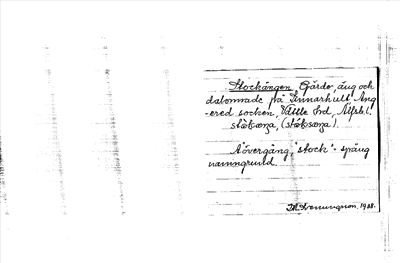 Stockängen, Gärde, äng och
dalområde på Linnarhult, Ang-
-ered socken, Vättle hrd, Älfsb. l.
stòkæŋa, (stòksæŋa).
Åövergång, "stock" - spång
namngrund
1928.